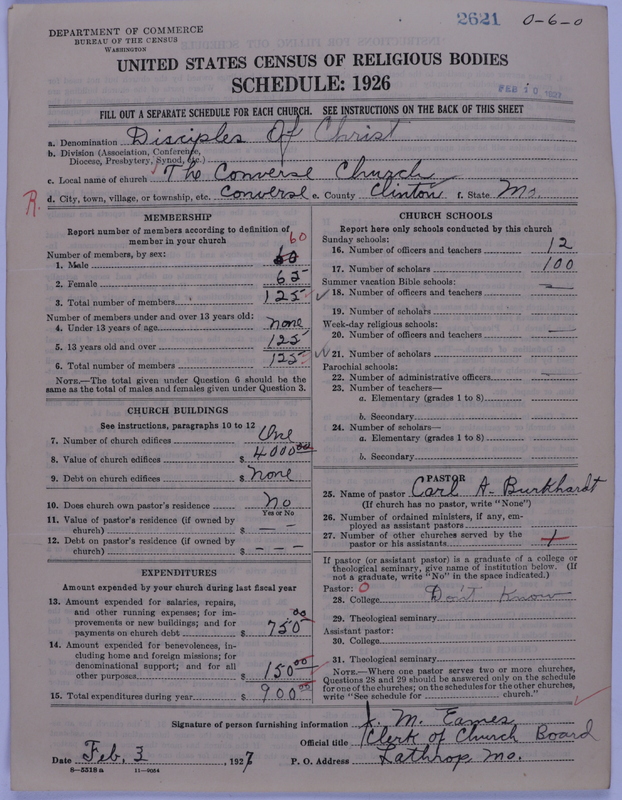 2621 0-6-0
DEPARTMENT OF COMMERCE
BUREAU OF THE CENSUS
WASHINGTON
UNITED STATES CENSUS OF RELIGIOUS BODIES
SCHEDULE: 1926
FEB 10 1927
FILL OUT A SEPARATE SCHEDULE FOR EACH CHURCH. SEE INSTRUCTIONS ON THE BACK OF THIS SHEET
a. Denomination Disciples Of Christ
b. Division (Association, Conference,
Diocese, Presbytery, Synod, etc.)
c. Local name of church The Converse Church
R. d. City, town, village, or township, etc. Converse e. County Clinton f. State Mo.
MEMBERSHIP
Report number of members according to definition of
member in your church
60
Number of members, by sex:
1. Male 60
2. Female 65
3. Total number of members 125
Number of members under and over 13 years old:
4. Under 13 years of age none
5. 13 years old and over 125
6. Total number of members 125
NOTE.—The total given under Question 6 should be
same as the total of males and females given under Question 3.
CHURCH BUILDINGS
See instructions, paragraphs 10 to 12
7. Number of church edifices One
8. Value of church edifices $ 4000 00
9. Debt on church edifices $ none
10. Does church own pastor's residence No
Yes or No
11. Value of pastor's residence (if owned by
church) $ — —
12. Debt on pastor's residence (if owned by
church) $ — — —
EXPENDITURES
Amount expended by your church during last fiscal year
13. Amount expended for salaries, repairs,
and other running expenses; for im-
provements or new buildings; and for
payments on church debt $ 750 00
14. Amount expended for benevolences, in-
cluding home and foreign missions; for
denominational support; and for all
other purposes $ 150 00
15. Total expenditures during year $ 900 00
CHURCH SCHOOLS
Report here only schools conducted by this church
Sunday schools:
16. Number of officers and teachers 12
17. Number of scholars 100
Summer vacation Bible schools:
18. Number of officers and teachers —
19. Number of scholars
Week-day religious schools:
20. Number of officers and teachers —
21. Number of scholars
Parochial schools:
22. Number of administrative officers —
23. Number of teachers—
a. Elementary (grades 1 to 8)
b. Secondary
24. Number of scholars—
a. Elementary (grades 1 to 8)
b. Secondary
PASTOR
25. Name of pastor Carl A. Burkhardt
(If church has no pastor, write "None")
26. Number of ordained ministers, if any, em-
ployed as assistant pastors
27. Number of other churches served by the
pastor or his assistants 1
If pastor (or assistant pastor) is a graduate of a college or
theological seminary, give name of institution below. (If
not a graduate, write "No" in the space indicated.)
Pastor: 0
28. College Don't Know
29. Theological seminary
Assistant pastor:
30. College
31. Theological seminary
NOTE.—Where one pastor serves two or more churches,
Questions 28 and 29 should be answered only on the schedule
for one of the churches; on the schedules for the other churches,
write "See schedule for church."
Signature of person furnishing information J. M. Eames
Official title Clerk of Church Board
Date Feb. 3, 1927 P. O. Address Lathrop Mo.
8—5318 a 11—9054